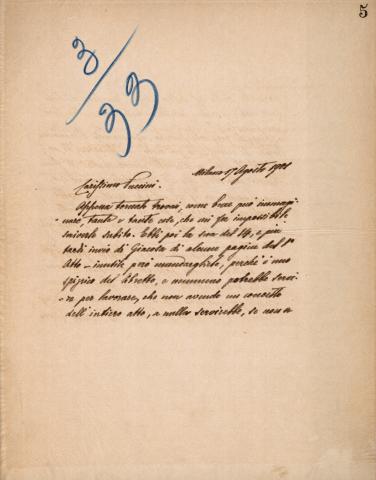 5
3/33
Milano 17 Agosto 1901
Carissimo Puccini.
Appena tornato trovai, come bene può immagi-
nare, tante e tante cose, che mi fu impossibile
scriverle subito. Ebbi poi la sua del 14, e più
tardi invio di Giacosa di alcune pagine del 1º
Atto - inutile però mandargliele, perchè è uno
del libretto, e nemmeno potrebbe servi-
re per lavorare, chè non avendo un concetto
dell'intiero atto, a nulla servirebbe, se non a